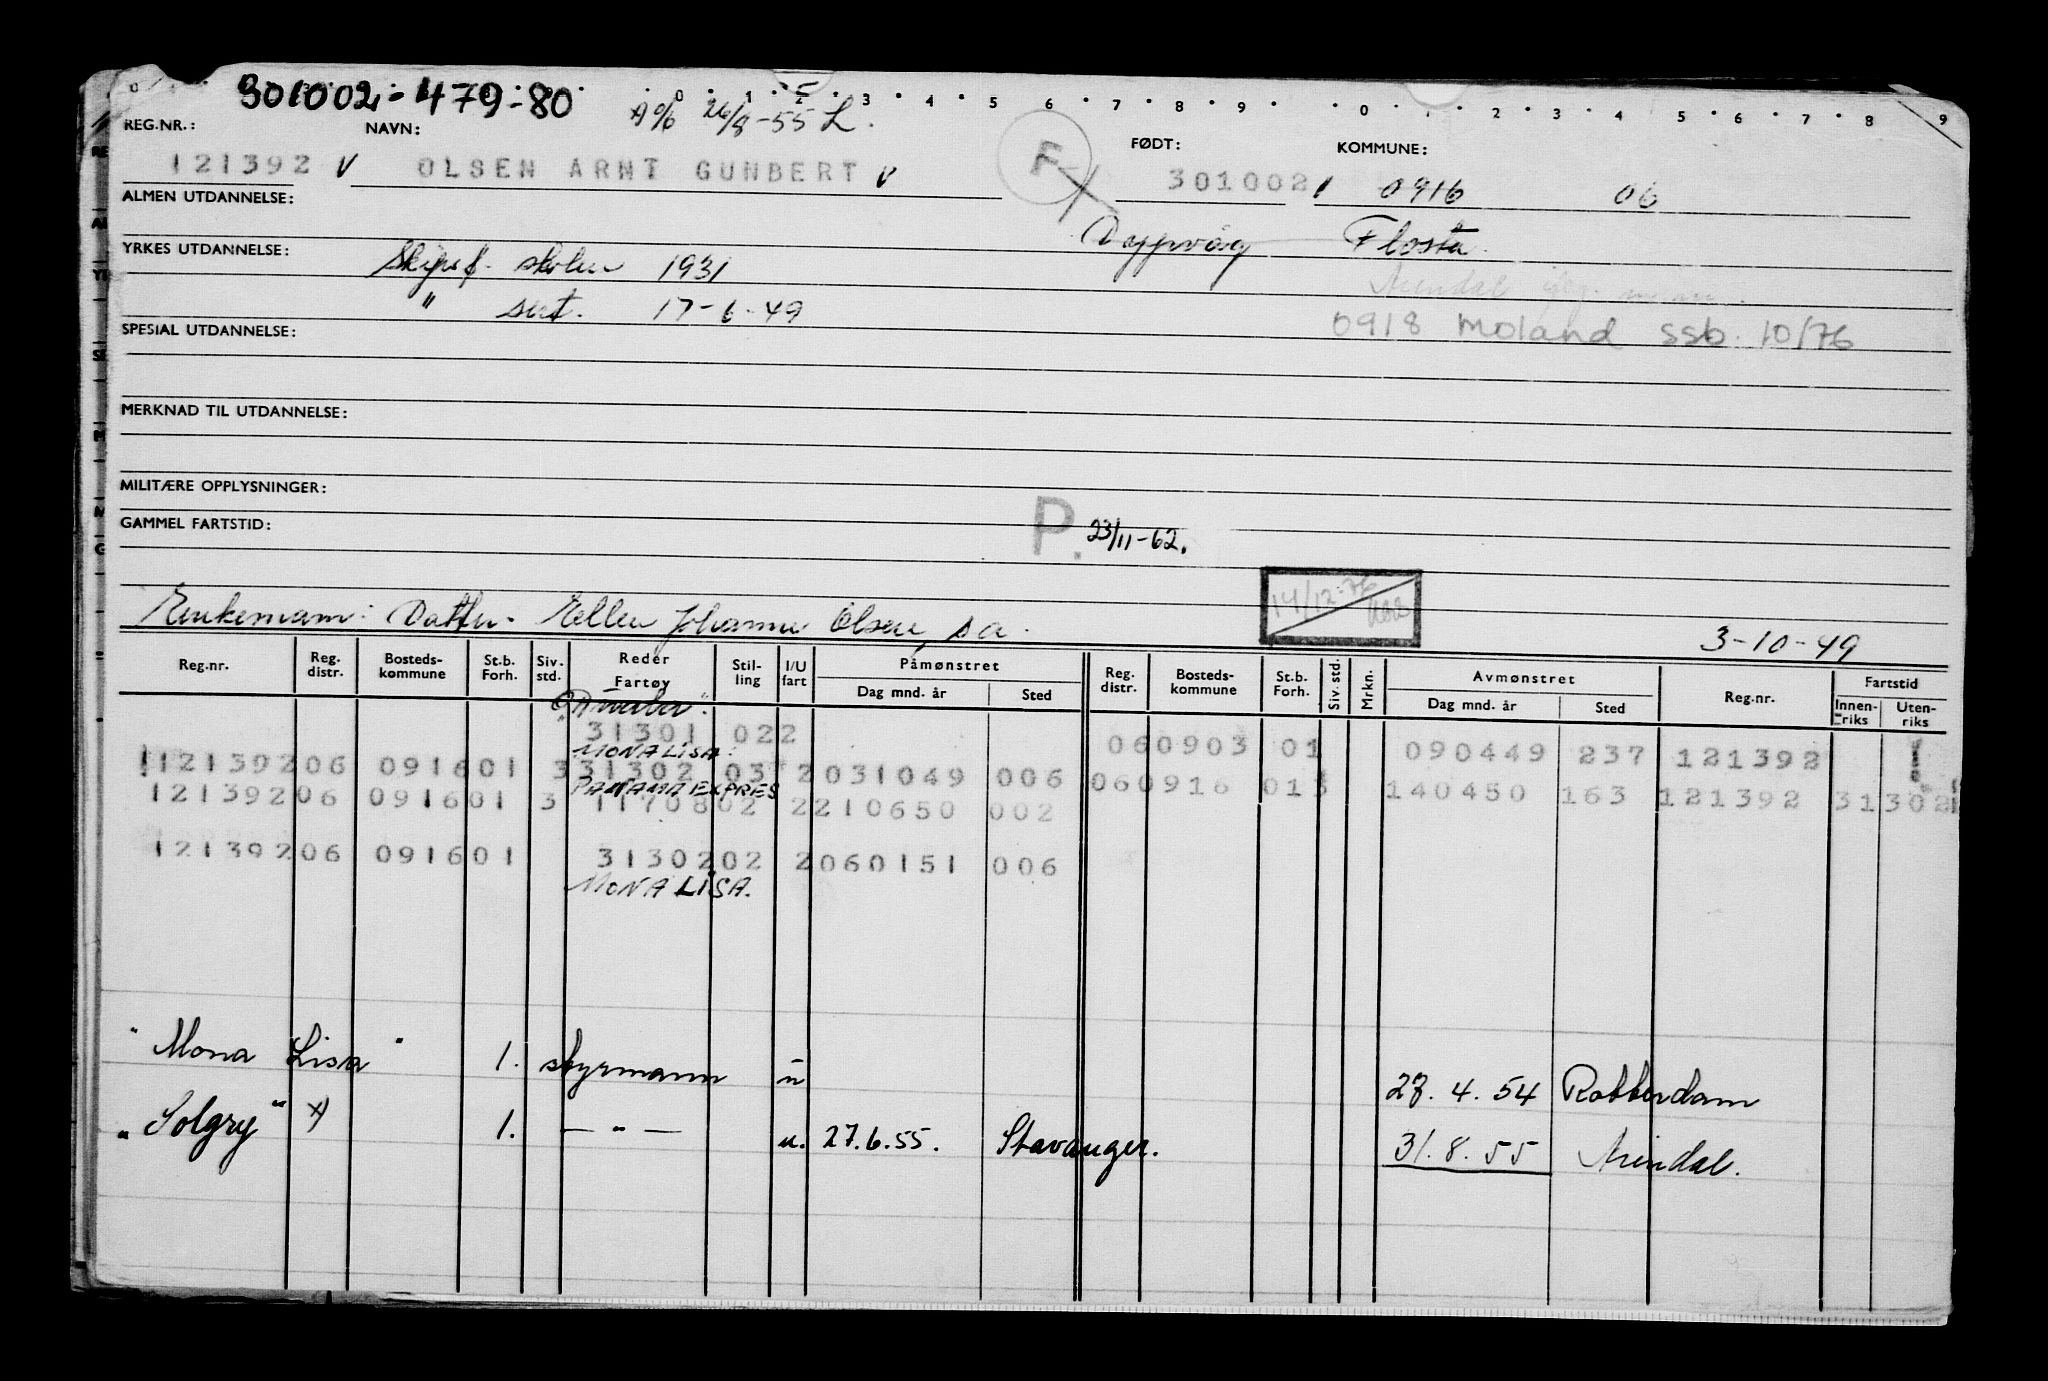 301002-479-80
26/8-55 L.
0 1 2 3 4 5 6 7 8 9 0 1 2 3 4 5 6 7 8 9
REG.NR.: NAVN: FØDT: KOMMUNE:
121392 V OLSEN ARNT GUNBERT V F 301002 0916 06
ALMEN UTDANNELSE:
Dypvåg Flosta
YRKES UTDANNELSE: Skipsf. skolen 1931
Arendal
" sert. 17-6-49
0918 Moland ssb. 10/76
SPESIAL UTDANNELSE:
MERKNAD TIL UTDANNELSE:
MILITÆRE OPPLYSNINGER:
GAMMEL FARTSTID:
P. 23/11-62.
14/12-76
Enkemann: Datter Ellen Johanne Olsen, s a.
3-10-49
Reg.nr. Reg. distr. Bosteds-kommune St.b. Forh. Siv. std. Reder Fartøy Stil-ling I/U fart Påmønstret Dag mnd. år Sted Reg. distr. Bosteds-kommune St.b. Forh. Siv. std. Mrkn. Avmønstret Dag mnd. år Sted Reg.nr. Fartstid Innen-riks Uten-riks
31301 022 060903 01 090449 237 121392
MONA LISA:
121392 06 0916 01 3 31302 03 2 031049 006 060916 013 140450 163 121392 31302
PANAMA EXPRES
121392 06 0916 01 3 11708 02 2 210650 002
121392 06 0916 01 31302 02 2 060151 006
MONA LISA.
"Mona Lisa" 1. styrmann u 27. 4. 54 Rotterdam
"Solgry" x) 1. — " — u. 27.6.55. Stavanger. 31. 8. 55 Arendal.